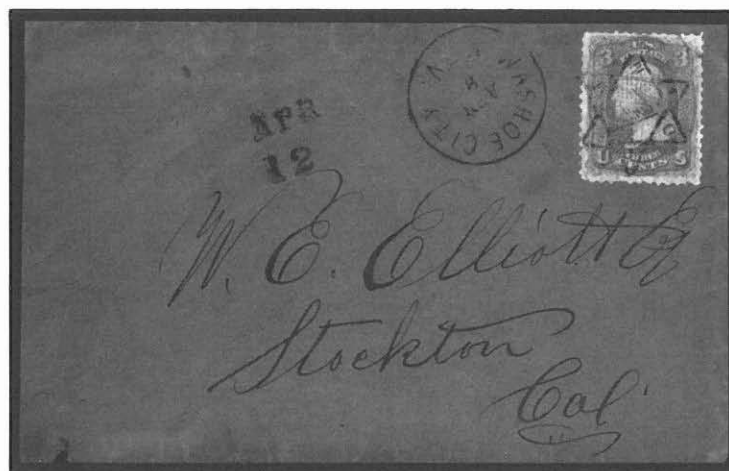 WASHOE CITY
APR
12
3 3
U S
CENTS
W. E. Elliott Esq
Stockton
Cal.